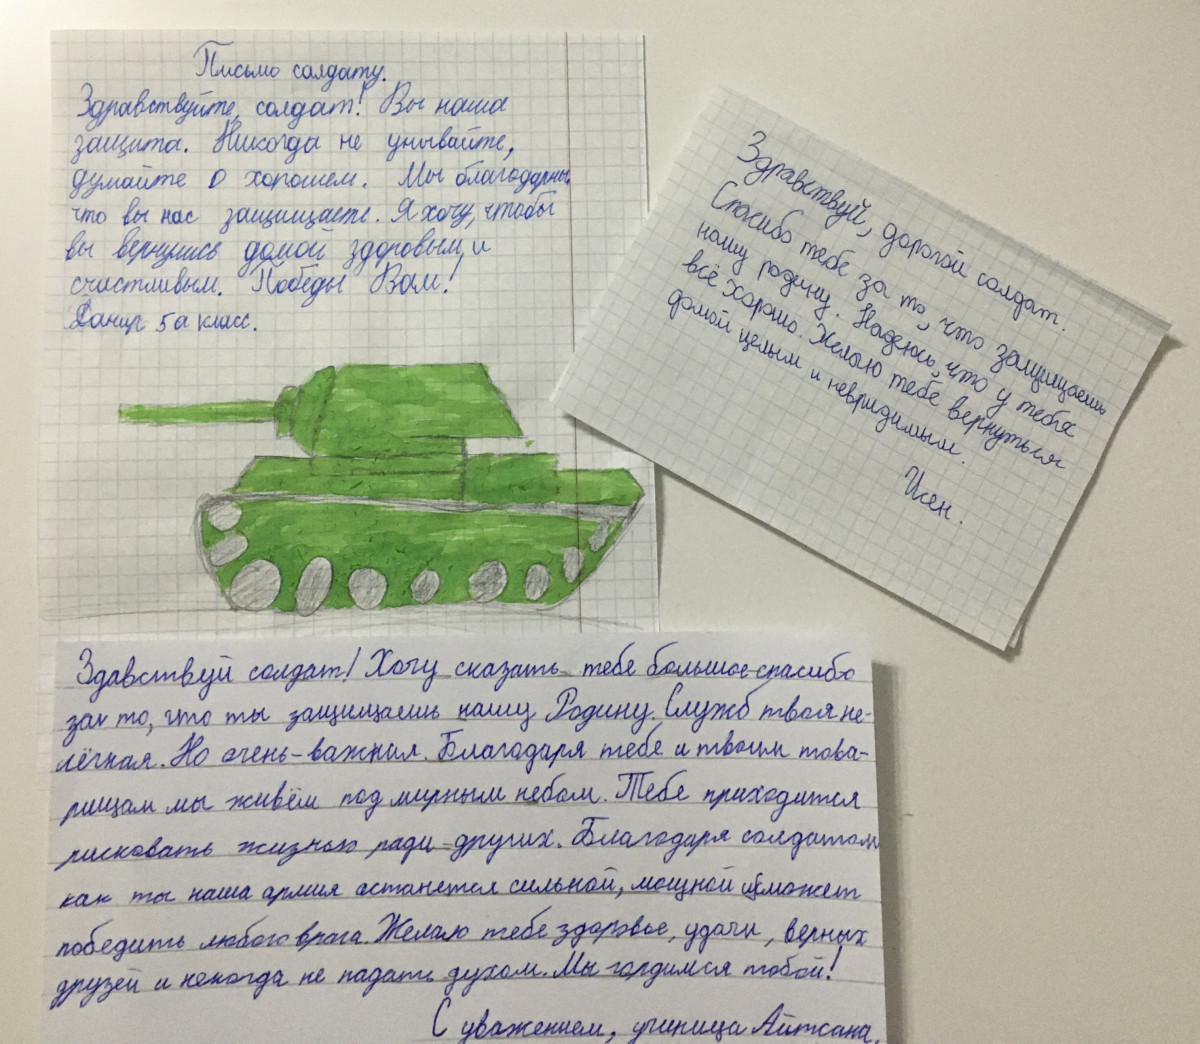 Письмо солдату.
Здравствуйте, солдат! Вы наша
защита. Никогда не унывайте,
думайте о хорошем. Мы благодарны
что вы нас защищаете. Я хочу, чтобы
вы вернулись домой здоровым и
счастливым. Победы Вам!
Данир 5а класс.
Здравствуй, дорогой солдат.
Спасибо тебе за то, что защищаешь
нашу родину. Надеюсь, что у тебя
всё хорошо. Желаю тебе вернуться
домой целым и невридимым.
Исен.
Здавствуй солдат! Хочу сказать тебе большое спасибо
за то, что ты защищаешь нашу Родину. Служб твоя не-
лёгкая. Но очень-важная. Благодаря тебе и твоим това-
рищам мы живём под мирным небом. Тебе приходится
рисковать жизнью ради других. Благодаря солдатам
как ты наша армия останется сильной, мощной и может
победить любого врага. Желаю тебе здоровье, удачи, верных
друзей и некогда не падать духом. Мы гордимся тобой!
С уважением, ученица Айтсана.